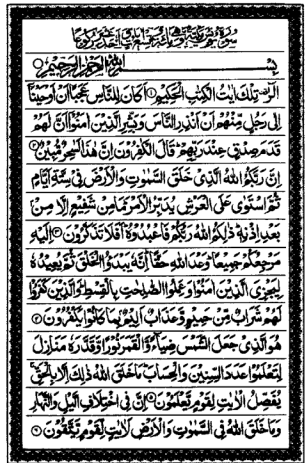 بسم الله الرحمن الرحيم
الر تلك ايت الكتب الحكيم ۝ اكان للناس عجبا ان اوحينا
الى رجل منهم ان انذر الناس وبشر الذين امنوا ان لهم
قدم صدق عند ربهم قال الكفرون ان هذا لسحر مبين ۝
ان ربكم الله الذي خلق السموت والارض في ستة ايام
ثم استوى على العرش يدبر الامر ما من شفيع الا من
بعد اذنه ذلكم الله ربكم فاعبدوه افلا تذكرون ۝ اليه
مرجعكم جميعا وعد الله حقا انه يبدؤا الخلق ثم يعيده
ليجزي الذين امنوا وعملوا الصلحت بالقسط والذين كفروا
لهم شراب من حميم وعذاب اليم بما كانوا يكفرون ۝
هو الذي جعل الشمس ضياء والقمر نورا وقدره منازل
لتعلموا عدد السنين والحساب ما خلق الله ذلك الا بالحق
يفصل الايت لقوم يعلمون ۝ ان في اختلاف اليل والنهار
وما خلق الله في السموت والارض لايت لقوم يتقون ۝